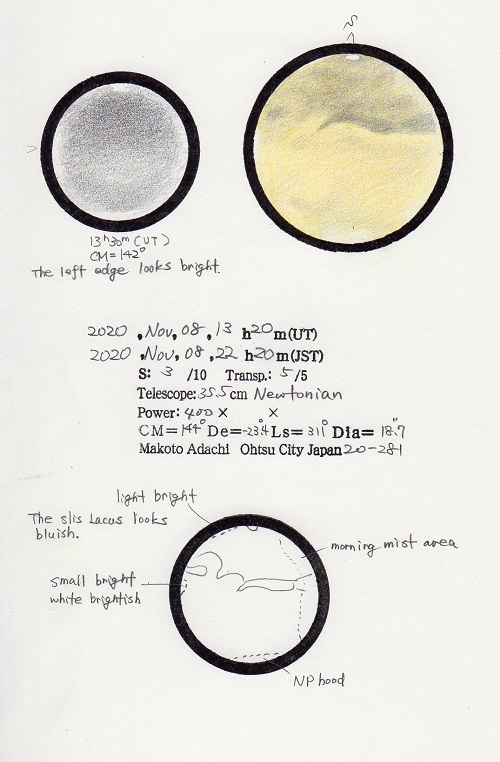 S
13h30m (UT)
CM=142°
The left edge looks bright.
2020 , Nov, 08 , 13 h20m(UT)
2020 , Nov, 08 , 22 h20m(JST)
S: 3 /10 Transp.: 5/5
Telescope: 35.5cm Newtonian
Power: 400 × ×
CM=144° De=-23.4° Ls=311° Dia= 18.7"
Makoto Adachi Ohtsu City Japan 20-281
light bright
The slis Lacus looks
bluish.
morning mist area
small bright
white brightish
NP hood